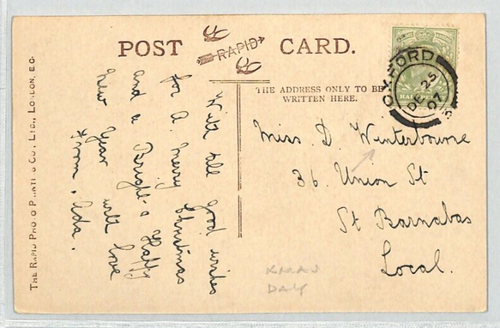 POST CARD.
RAPID
THE ADDRESS ONLY TO BE
WRITTEN HERE.
OXFORD
DE 25
07
With all good wishes
for A. Merry Christmas
and a Bright & Happy
New Year with love
from. Ada.
Miss D. Winterbourne
36. Union St
St Barnabas
Local.
XMAS
DAY
THE RAPID PHOTO PRINTING CO., LTD., LONDON, E.C.